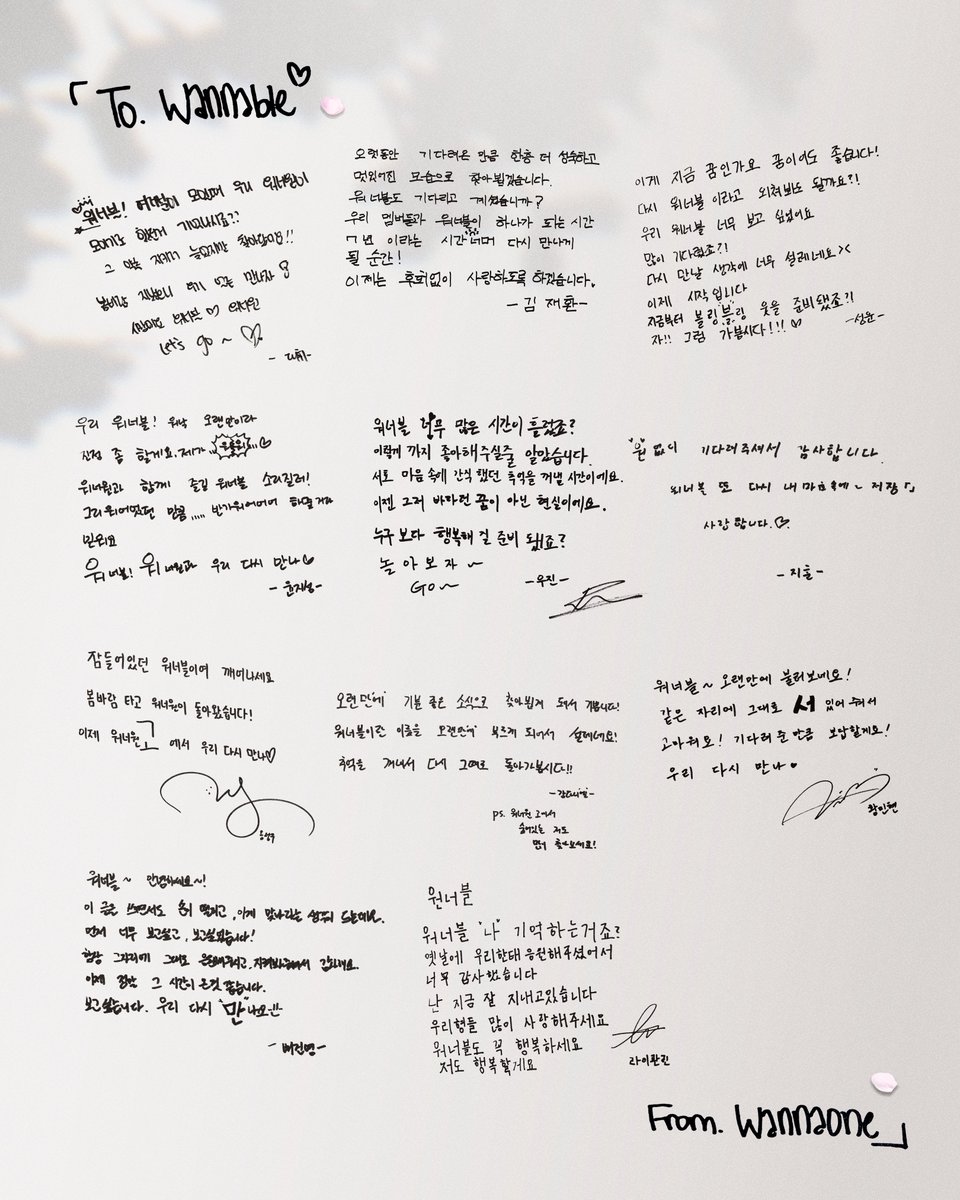 「To. Wannable♡
워너블! 여러분이 모이며 우리 워너원이
모이는 기다리셨죠??
그 약속 지키기 늦었지만 찾아왔어요!!
있는 만나자
워너블 ♡ 워너원
Let's go ~ ♡
- 대휘 -
오랫동안 기다려온 만큼 한층 더 성숙하고
멋있어진 모습으로 찾아뵙겠습니다.
워너블도 기다리고 계셨습니까?
우리 멤버들과 워너블이 하나가 되는 시간
7년 이라는 시간 너머 다시 만나게
될 순간!
이제는 후회없이 사랑하도록 하겠습니다.
- 김재환 -
이게 지금 꿈인가요 꿈이어도 좋습니다!
다시 워너블 이라고 외쳐봐도 될까요?!
우리 워너블 너무 보고 싶었어요
많이 기다렸죠?!
다시 만날 생각에 너무 설레네요 ><
이제 시작 입니다
지금부터 블링"블"링 웃을 준비됐죠?!
자!! 그럼 가봅시다!!! ♡
- 성운 -
우리 워너블! 워낙 오랜만이라
진정 좀 할게요. 제가
워너원과 함께 즐길 워너블 소리질러!
그리워어었던 만큼,,,,, 반가워어어어 하실 거라
믿워요
워너블! 워너원과 우리 다시 만나♡
- 윤지성 -
워너블 너무 많은 시간이 흘렀죠?
이렇게 까지 좋아해주실줄 알았습니다.
서로 마음 속에 간직 했던 추억을 꺼낼 시간이에요.
이젠 그저 바라던 꿈이 아닌 현실이에요.
누구 보다 행복해 질 준비 됐죠?
놀아보자 ~
GO ~
- 우진 -
"훈"없이 기다려주셔서 감사합니다.
워너블 또 다시 내 마음 속에 ~ 저장「」
사랑합니다.♡
- 지훈 -
잠들어있던 워너블이여 깨어나세요
봄바람 타고 워너원이 돌아왔습니다!
이제 워너원고 에서 우리 다시 만나♡
옹성우
오랜만에 기분 좋은 소식으로 찾아뵙게 돼서 기쁩니다!
워너블이란 이름을 오랜만에 부르게 되어서 설레네요!
추억을 꺼내서 다시 그때로 돌아가봅시다!!
- 강다니엘 -
ps. 워너원 고에서
숨어있는 저도
많이 찾아보세요!
워너블 ~ 오랜만에 불러보네요!
같은 자리에 그대로 서 있어 줘서
고마워요! 기다려 준 만큼 보답할게요!
우리 다시 만나♥
황민현
워너블 ~ 안녕하세요~!
이 글을 쓰면서도 손이 떨리고, 이게 맞나라는 생각이 드는데요.
먼저 너무 보고싶고, 보고싶었습니다!
항상 그자리에 그대로 응원해주시고, 지켜봐주셔서 감사해요.
이제 정말 그 시간이 온것 같습니다.
보고싶습니다. 우리 다시 "만"나요!!
- 배진영 -
원너블
워너블 "나" 기억하는거죠?
옛날에 우리한태 응원해주셨어서
너무 감사했습니다
난 지금 잘 지내고있습니다
우리형들 많이 사랑해주세요
워너블도 꼭 행복하세요
저도 행복할게요
라이관린
From. Wannaone」